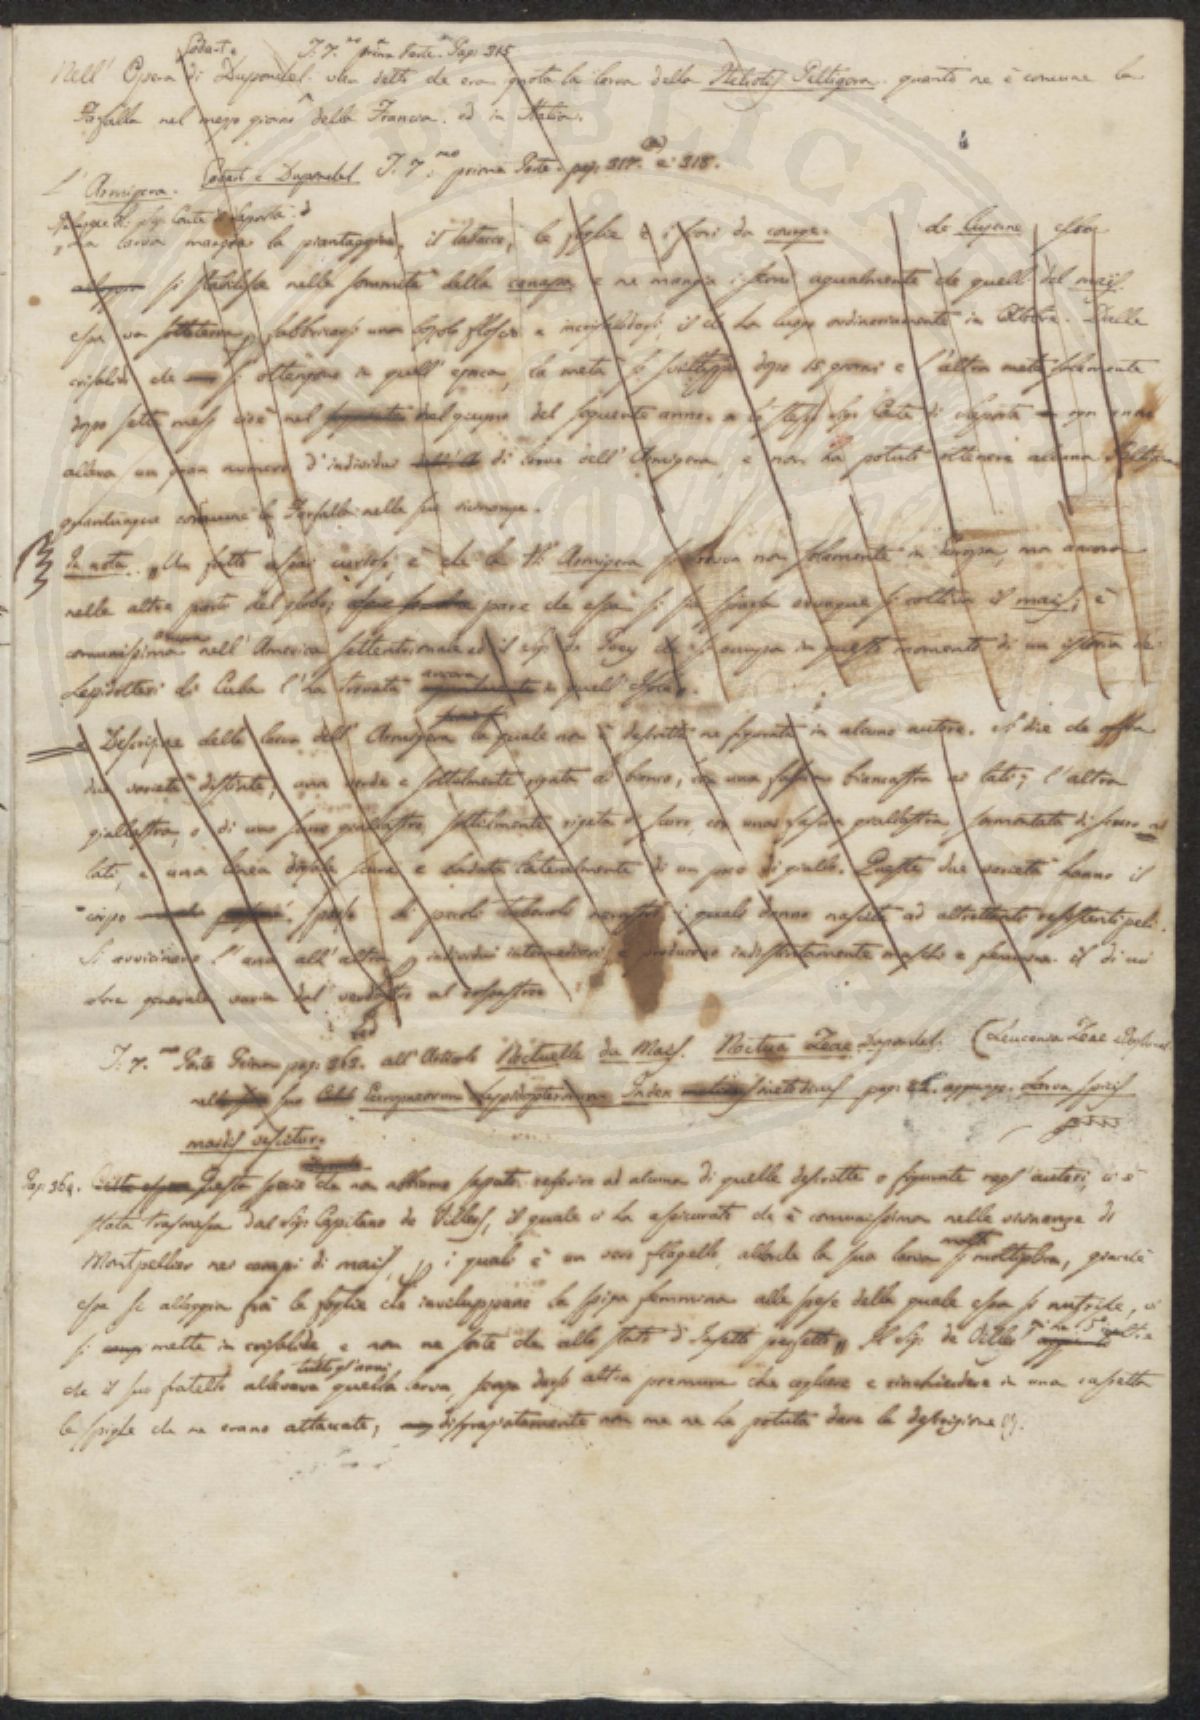 Godart e T. 7.mo prima Parte. Pag. 315
Nell' Opera di Duponchel. vien detto che era ignota la larva della Heliotis Peltigera. quanto ne è comune la
Farfalla nel mezzo giorno della Francia. ed in Italia.
L' Armigera. Godart e Duponchel T. 7.mo prima Parte. pag. 317. e 318.
sig. Conte di Saporta
la larva mangia la piantaggine, il tabacco, le foglie e i fiori da courge. de Luzerne essa
si stabilisce nelle sommità della canapa e ne mangia i semi egualmente che quelli del mais.
essa va sotterra, a fabbricarsi una e incrisalidarsi, il che ha luogo ordinariamente in Ottobre. Dalle
crisalidi che si ottengono in quell' epoca, la metà si sviluppa dopo 15 giorni e l'altra metà solamente
dopo sette mesi cioè nel del giugno del seguente anno. lo stesso sig. Conte di Saporta ogni anno
alleva un gran numero d'individui di larve dell' Armigera e non ha potuto ottenere alcuna Peltigera
quantunque comune la Farfalla nelle sue vicinanze.
In nota. "Un fatto assai curioso, è che la H. Armigera si trova non solamente in Europa, ma ancora
nelle altre parti del globo; pare che essa si sia sparsa ovunque si coltiva il mais; è
comunissima ancora nell' America settentrionale ed il sig. de Poey che si occupa in questo momento di un istoria dei
Lepidotteri di Cuba l'ha trovata ancora in quell' Isola".
Descrizione della larva dell' Armigera la quale non è descritta ne figurata in alcuno autore. Si dice che
due varietà distinte; una verde e sottilmente rigata di bianco, con una fascia biancastra ai lati; l'altra
giallastra, o di uno giallastro, sottilmente rigata di scuro, con una fascia giallastra, sormontata di scuro ai
lati, e una linea dorsale scura e bordata lateralmente di un poco di giallo. Queste due varietà hanno il
corpo di piccoli tubercoli nerastri i quali danno nascita ad altrettanti peli.
Si avvicinano l' una all' altra individui intermediari, e producono indistintamente maschi e femmine. il di cui
colore generale varia dal verdastro al rossastro
T. 7.mo Parte Prima pag. 362. all' Articolo Noctuelle du Mais. Noctua Zeae Duponchel. (Leucania Zeae
nel suo Europaeorum Lepidopterorum Index methodicus pag. aggiunge. Larva spicis
maidis vescitur.
Pag. 364. Questa specie che non abbiamo saputo riferire ad alcuna di quelle descritte o figurate negl' autori, ci è
stata trasmessa dal Sig. Capitano de Villiers, il quale ci ha assicurato che è comunissima nelle vicinanze di
Montpellier nei campi di mais, per i quali è un vero flagello, allorchè la sua larva si molto moltiplica, giacchè
essa si alloggia frà le foglie che inviluppano la spiga femmina alle spese della quale essa si nutrisce, vi
si mette in crisalide e non ne sorte che allo stato d' Insetto perfetto" Il Sig. de Villiers
che il suo fratello allevava tutti gl'anni quella larva, senza darsi altra premura che cogliere e rinchiudere in una cassetta
le spighe che ne erano attaccate; disgraziatamente non me ne ha potuta dare la descrizione.